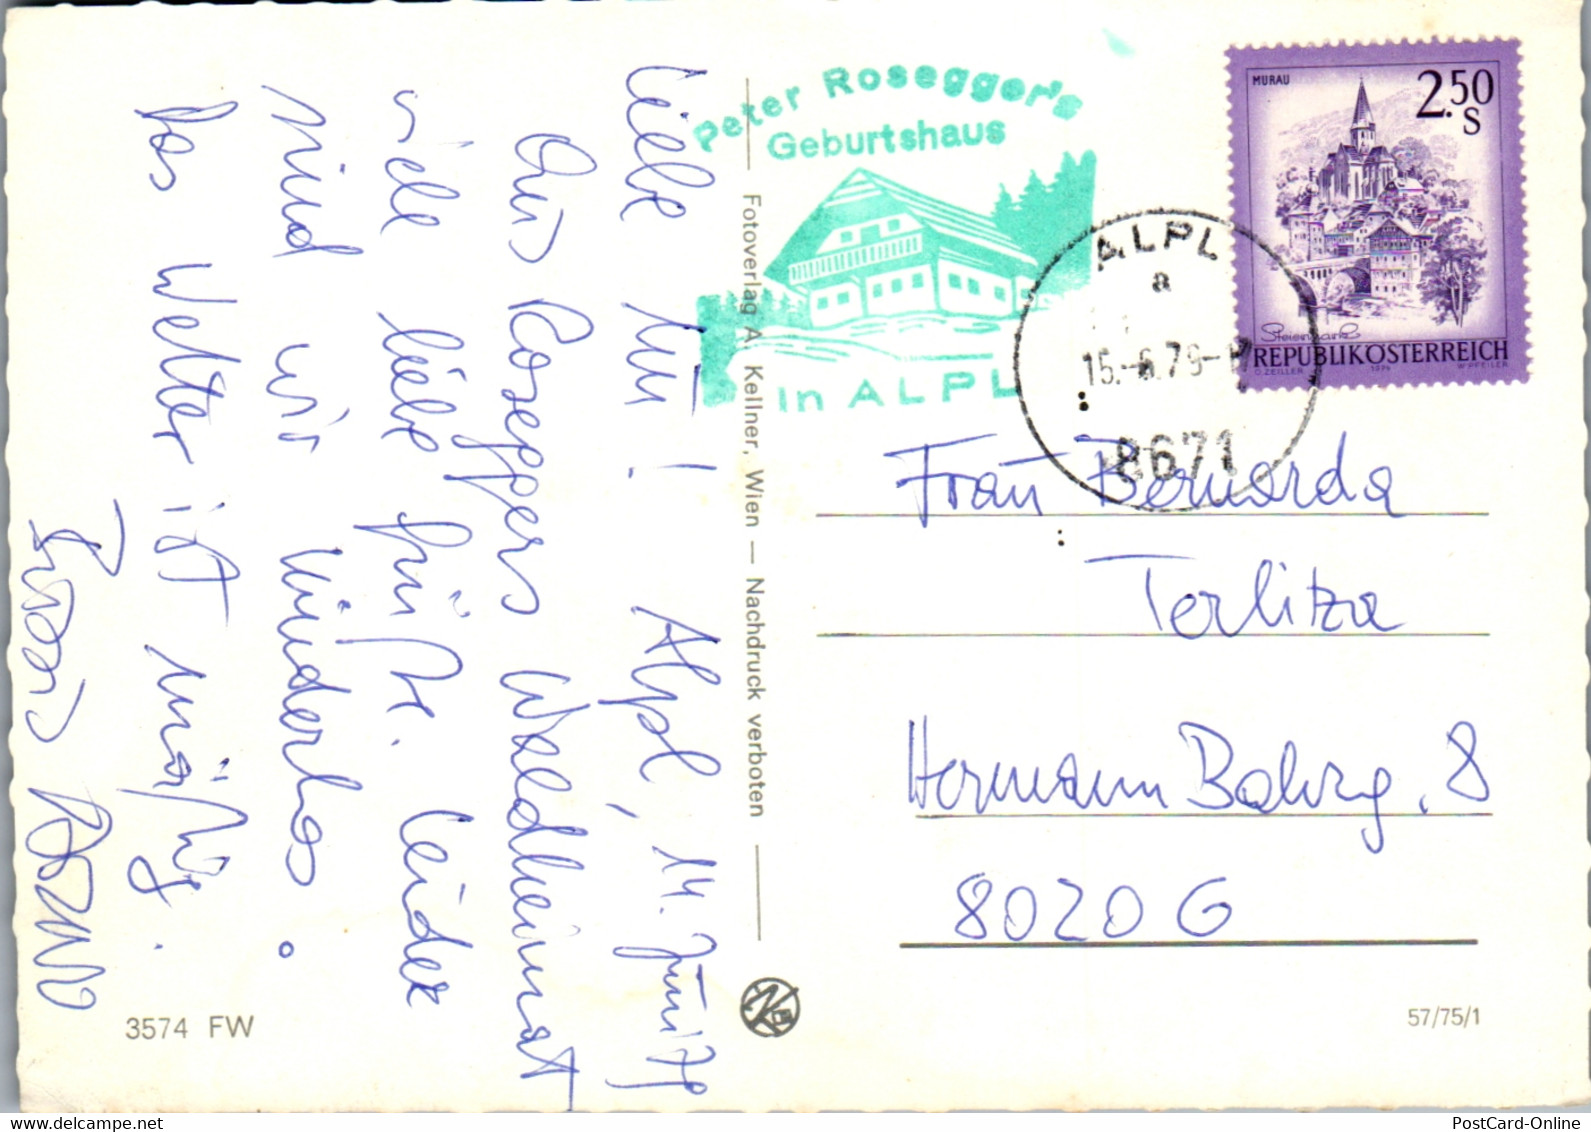 Liebe Mu! Alpl, 14. Juni 79
Aus Roseggers Waldheimat
viele liebe Grüße. Leider
sind wir hinderlos.
Das Wetter ist mäßig.
Peter Rosegger's
Geburtshaus
in ALPL
MURAU
2.50
S
Steiermark
REPUBLIK ÖSTERREICH
O. ZEILLER 1974 W. PFEILER
ALPL
a
15.-6.79-
8671
Frau Bernarda
Terlitza
Hermann Bahrg. 8
8020 G
Fotoverlag A. Kellner, Wien — Nachdruck verboten
3574 FW
57/75/1
PostCard-Online